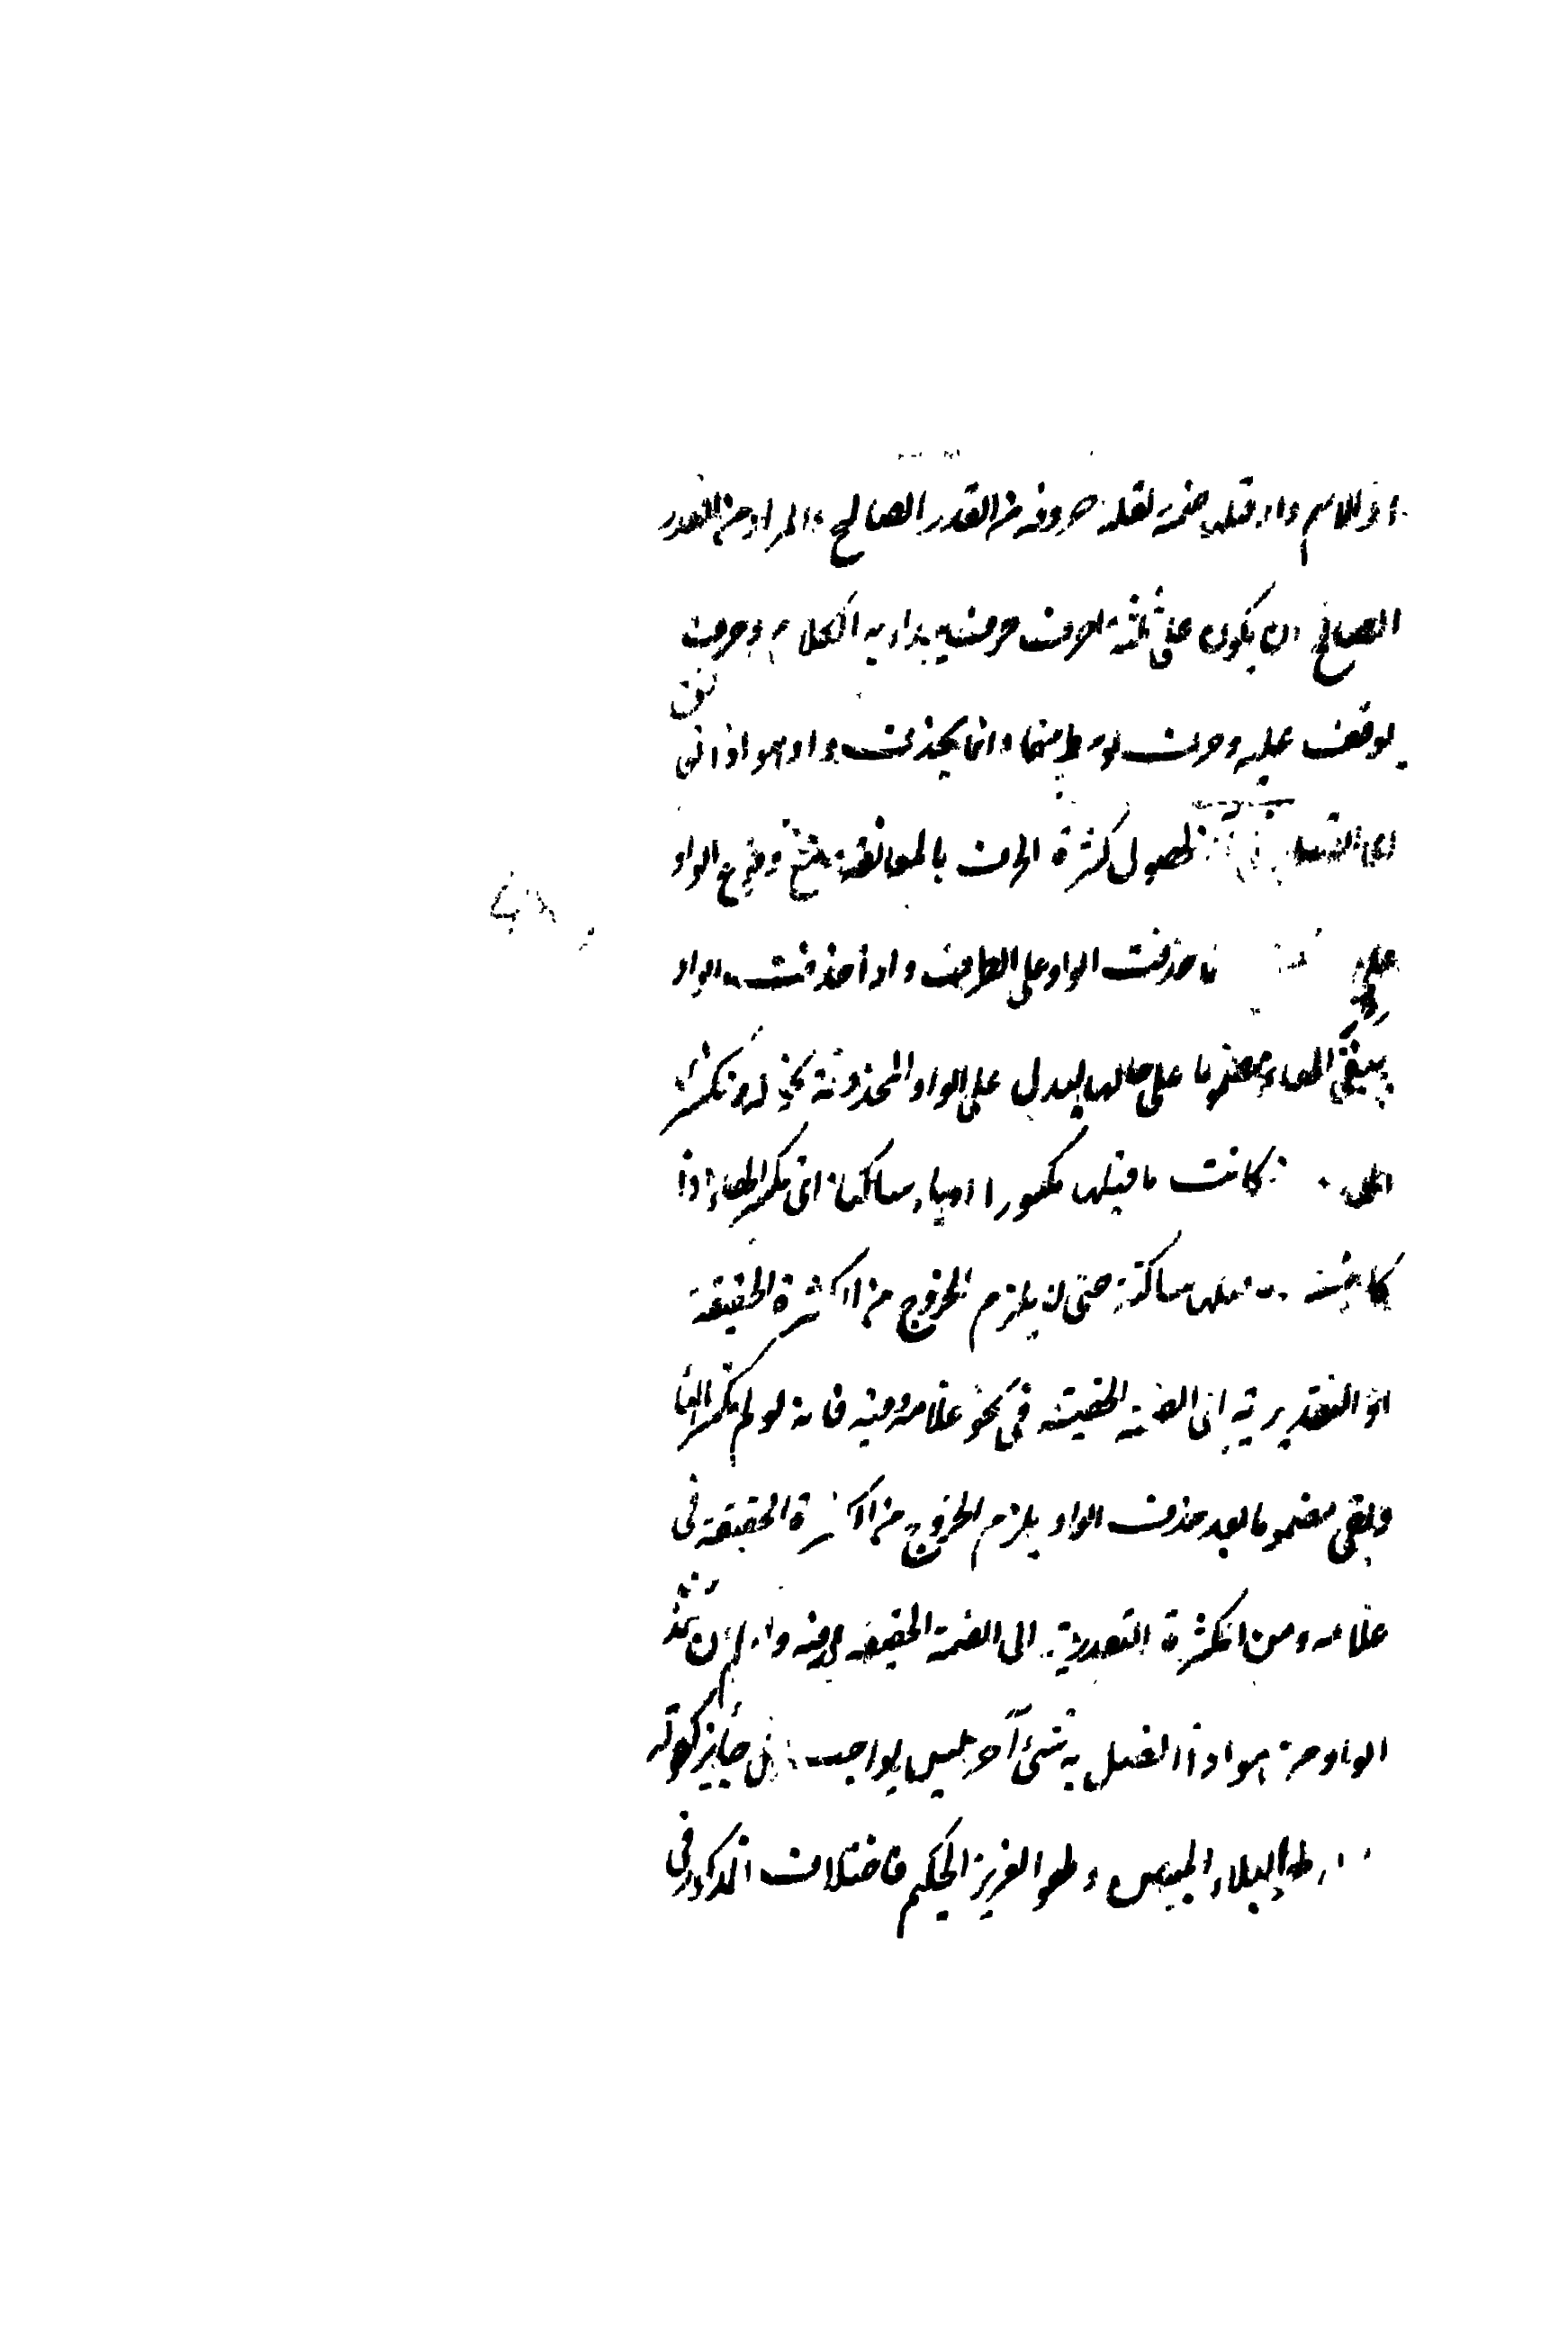 اخر الاسم واو قبلها ضمة لقلة حروفه من القدر الصالح والمراد من القدر
الصالح ان يكون على ثلثة احرف حرف يبداء به الكلام وحرف
يوقف عليه وحرف يوسط بينهما وانما يحذف واو هو اذا اتصل
لحصول كثرة الحرف بالمعانقة مع وقوع الواو
على حذفت الواو على الطرف واذا حذفت الواو
يبقى الهاء مضموما على حالها ليدل على الواو المحذوفة نحو له وتكسر
الهاء كانت ما قبلها مكسورا او ياء ساكنة اى تكسر الهاء اذا
كانت قبلها ساكنة حتى لا يلزم الخروج من الكسرة الحقيقة
او التقديرية الى الضمة الحقيقة فى نحو غلامه وفيه فانه لو لم تكسر الهاء
وبقى مضموما بعد حذف الواو يلزم الخروج من الكسرة الحقيقة فى
غلامه ومن الكسرة التقديرية الى الضمة الحقيقة فى فيه
الواو من هو اذا اتصل به شئ آخر ليس بواجب بل جايز كقوله
البلاء المبين وهو العزيز الحكيم فاختلاف المذكور فى